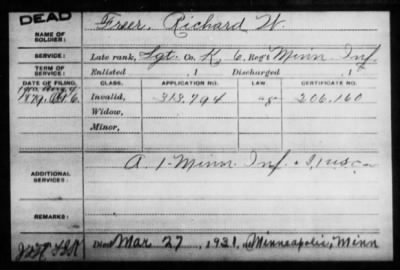 DEAD
NAME OF SOLDIER: Freer, Richard W.
SERVICE: Late rank, Sgt. Co. K, 6, Reg't Minn. Inf.
TERM OF SERVICE: Enlisted , 1 Discharged , 1
DATE OF FILING. CLASS. APPLICATION NO. LAW. CERTIFICATE NO.
1879, Oct. 6. Invalid, 313,794 206,160
Widow,
Minor,
ADDITIONAL SERVICES: A. 1- Minn. Inf.
REMARKS:
Died Mar 27, 1931, Minneapolis, Minn